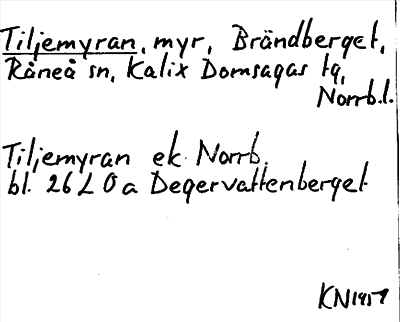 Tiljemyran, myr, Brändberget,
Råneå sn, Kalix Domsagas tg,
Norrb.l.
Tiljemyran ek. Norrb.
bl. 26 L 0 a Degervattenberget
KN 1957